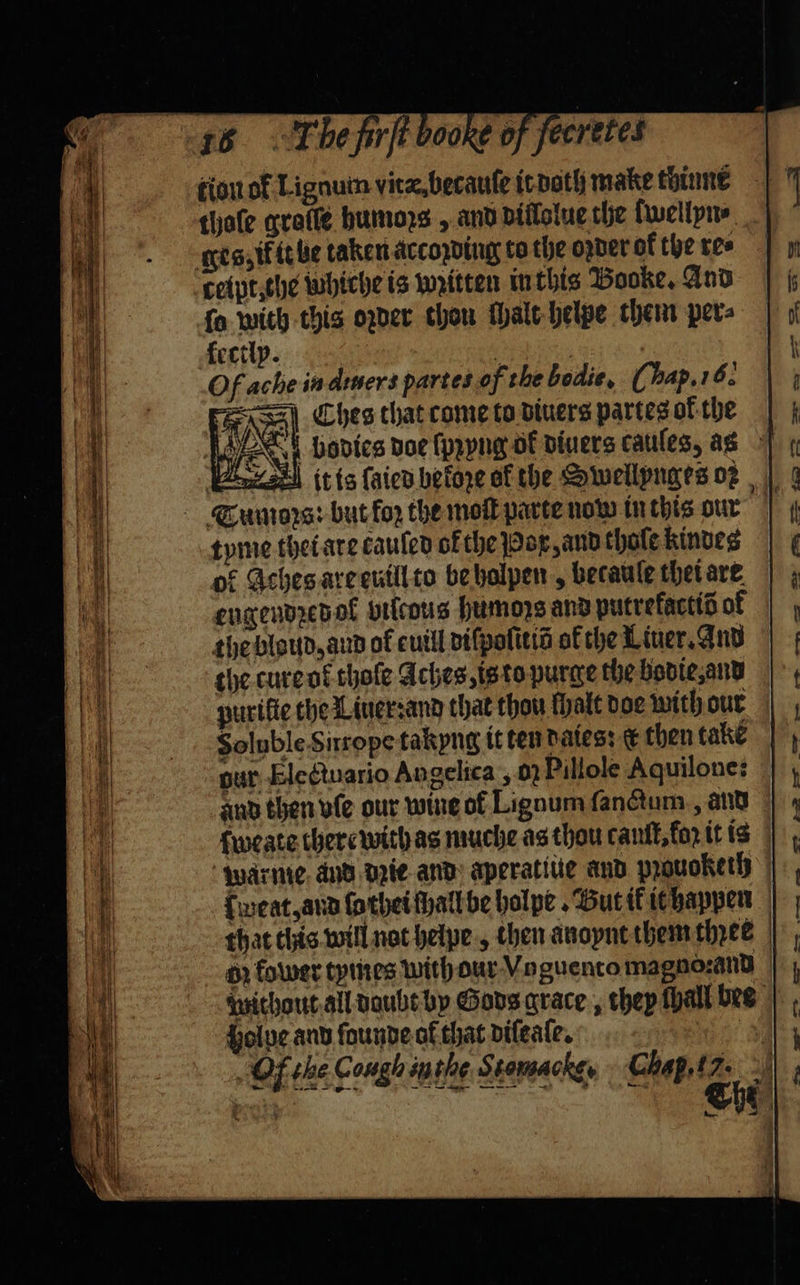 16 The first booke of secretes
tion of Lignum vitæ, because it doth make thinne
those grosse humors, and dissolue the swellyn-
ges, if it be taken according to the order of the re-
ceipt, the whiche is written in this Booke. And
so with this order thou shalt helpe them per-
fectly.
Of ache in diuers partes of the bodie. Chap. 16.
AChes that come to diuers partes of the
bodies doe spryng of diuers causes, as
it is saied before of the Swellynges or
Tumors: but for the most parte now in this our
tyme thei are caused of the Pox, and those kindes
of Aches are euill to be holpen, because thei are
engendred of viscous humors and putrefactiō of
the bloud, and of euill dispositiō of the Liuer. And
the cure of those Aches, is to purge the bodie, and
purifie the Liuer: and that thou shalt doe with our
Soluble Sirrope takyng it ten daies: & then take
our Electuario Angelica, or Pillole Aquilone:
and then vse our wine of Lignum sanctum, and
sweate therewith as muche as thou canst, for it is
warme and drie and aperatiue and prouoketh
sweat, and so thei shall be holpe. But if it happen
that this will not helpe, then anoynt them three
or fower tymes with our Vnguento magno: and
without all doubt by Gods grace, they shall bee
holpe and sounde of that disease.
Of the Cough in the Stomacke. Chap. 17.
The